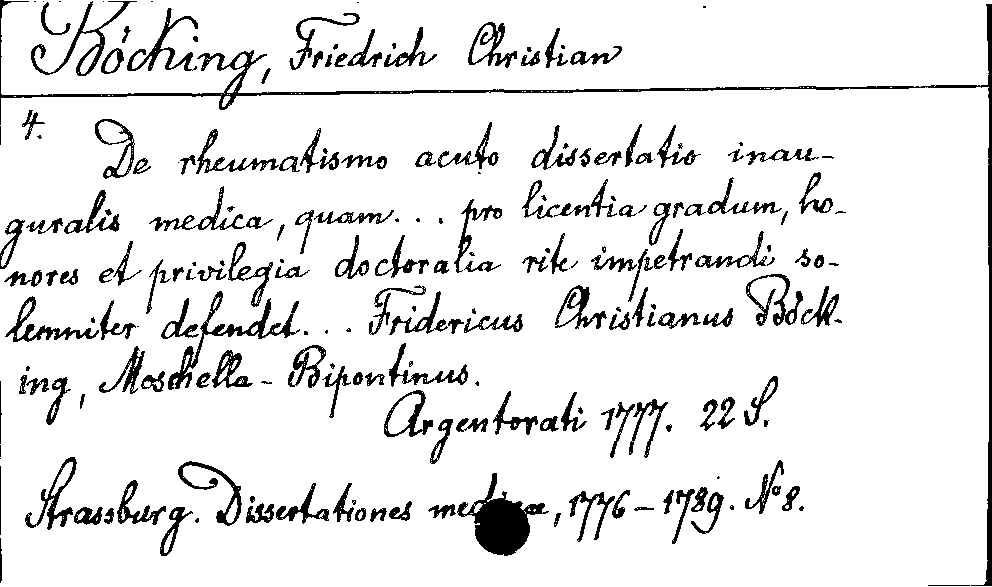 Böcking, Friedrich Christian
4.
De rheumatismo acuto dissertatio inau-
guralis medica, quam... pro licentia gradum, ho-
nores et privilegia doctoralia rite impetrandi so-
lemniter defendet... Fridericus Christianus Böck-
ing, Moschella-Bipontinus.
Argentorati 1777. 22 S.
Strassburg. Dissertationes medicae, 1776-1789. No 8.